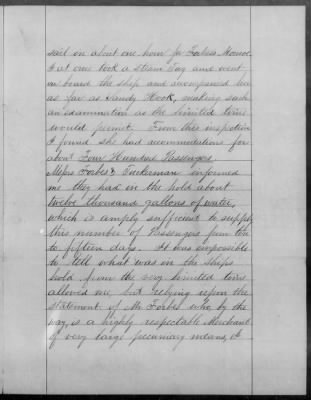 sail in about one hour for Fortress Monroe
I at once took a Steam Tug and went
on board the ship and accompanied her
as far as Sandy Hook, making such
an examination as the limited time
would permit. From this inspection
I found she had accommodations for
about Four Hundred Passengers.
Messrs Forbes & Tuckerman informed
me they had in the hold about
twelve thousand gallons of water,
which is amply sufficient to supply
this number of Passengers from ten
to fifteen days. It was impossible
to tell what was in the ships
hold from the very limited time
allowed me, but relying upon the
statement of Mr Forbes who, by the
way, is a highly respectable Merchant
of very large pecuniary means, &